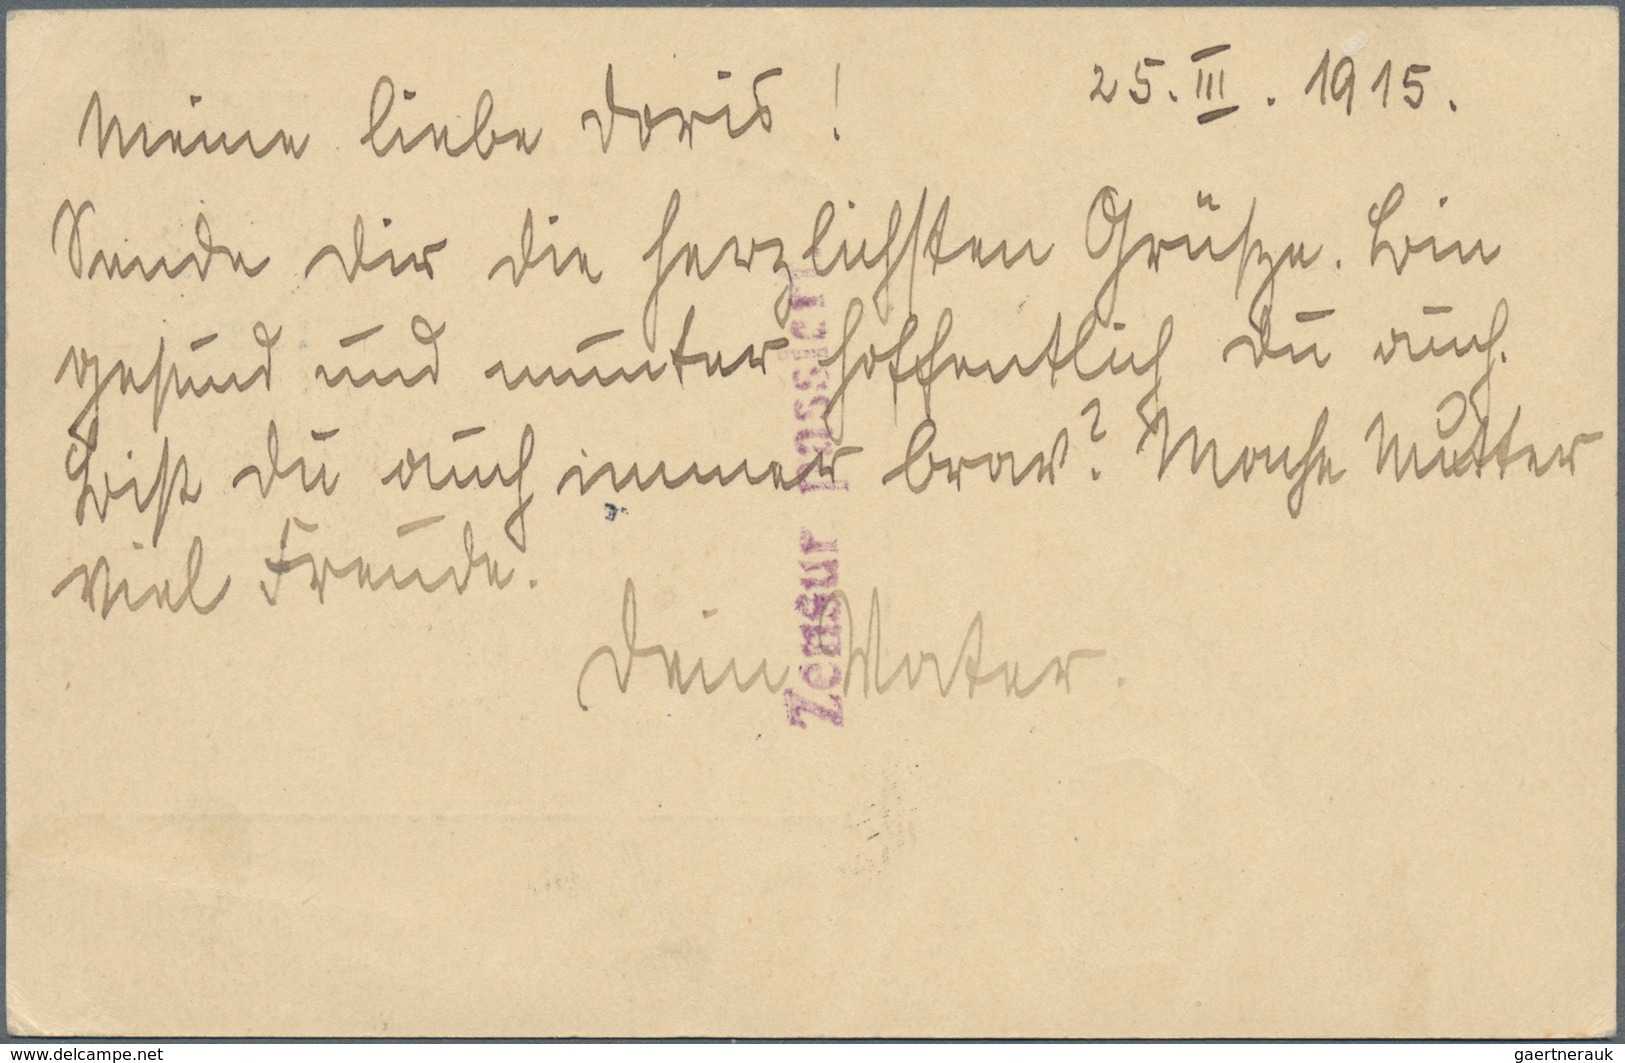 25. III. 1915.
Meine liebe Doris!
Sende Dir die herzlichsten Grüsze. Bin
gesund und munter hoffentlich Du auch.
Bist Du auch immer brav? Mache Mutter
viel Freude.
Dein Vater.
Zensur passiert
www.delcampe.net
gaertnerauk